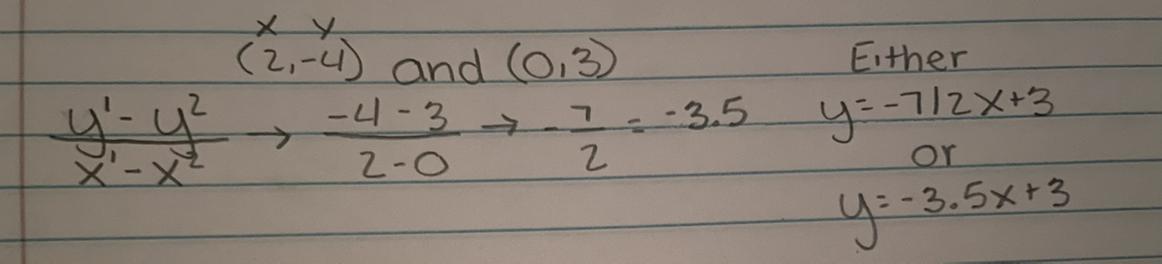 x y
(2,-4) and (0,3)
y¹-y²/x¹-x² → -4-3/2-0 → -7/2 = -3.5
Either
y=-7/2x+3
or
y=-3.5x+3